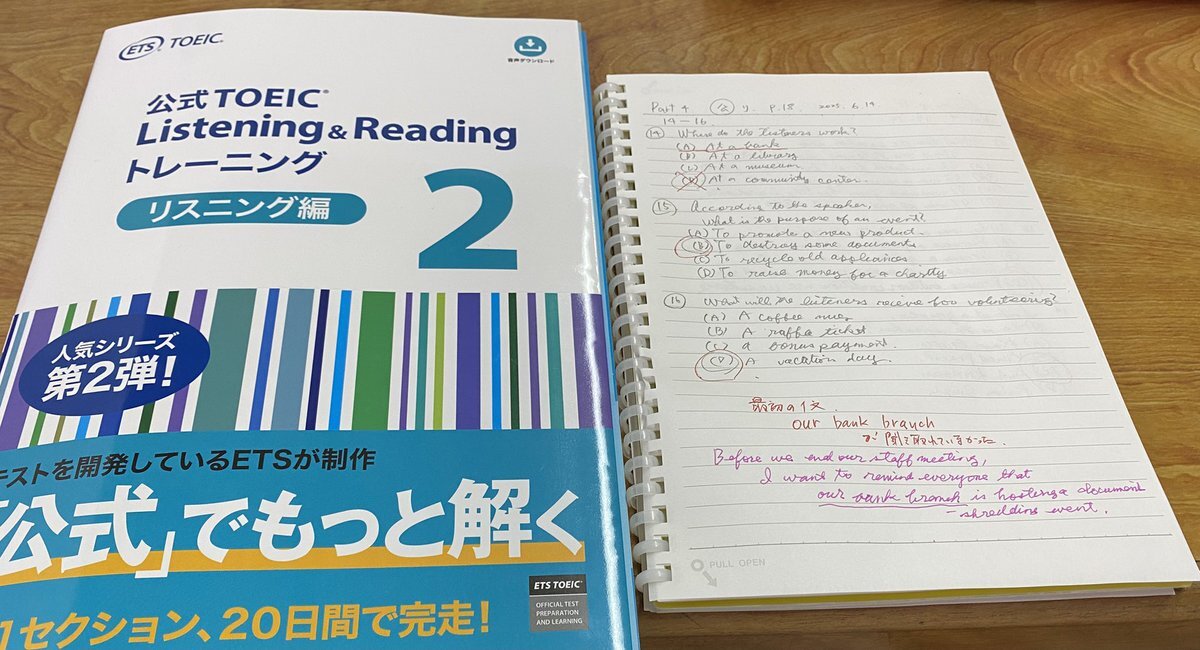 ETS TOEIC
音声ダウンロード
公式 TOEIC®
Listening & Reading
トレーニング
リスニング編
2
人気シリーズ
第2弾!
テストを開発しているETSが制作
「公式」でもっと解く
1セクション、20日間で完走!
ETS TOEIC®
OFFICIAL TEST
PREPARATION
AND LEARNING
Part 4 公 リ P.18 2025.6.19
14-16
14 Where do the listeners work?
(A) At a bank
(B) At a library
(C) At a museum
(D) At a community center.
15 According to the speaker,
What is the purpose of an event?
(A) To promote a new product.
(B) To destroy some documents
(C) To recycle old appliances
(D) To raise money for a charity
16 What will the listeners receive for volunteering?
(A) A coffee mug
(B) A raffle ticket
(C) a bonus payment.
(D) A vacation day.
最初の1文.
our bank branch
が 聞き取れていなかった.
Before we end our staff meeting,
I want to remind everyone that
our bank branch is hosting a document
-shredding event.
PULL OPEN